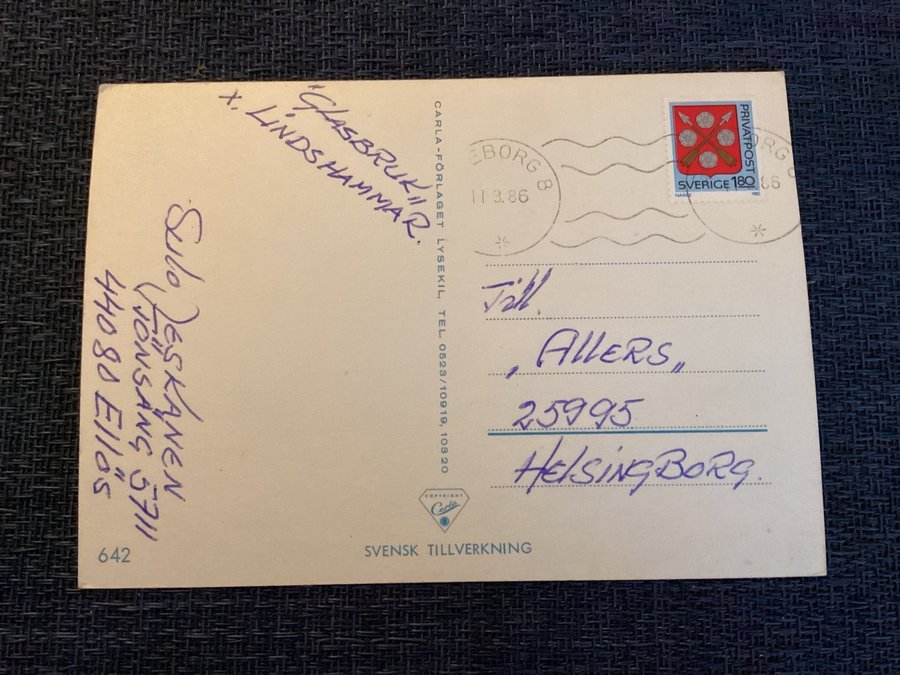 "GLASBRUK"
x. LINDSHAMMAR.
Sulo
JÖNSÄNG 5711
44080 Ellös
642
CARLA-FÖRLAGET LYSEKIL, TEL. 0523/10919, 10820
COPYRIGHT
Carla
SVENSK TILLVERKNING
EBORG 8
11.3.86
PRIVATPOST
SVERIGE 180
1985
ORG 8
86
Till.
"Allers"
25995
HelsingBorg.